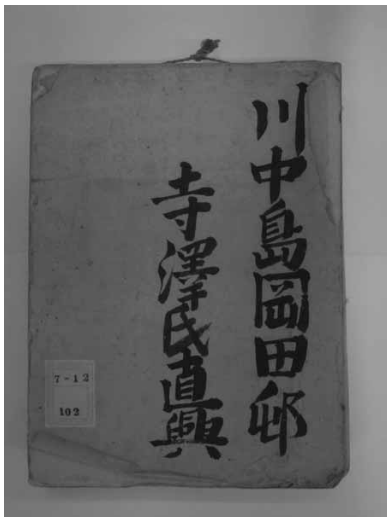 川中島岡田邨
寺澤氏直興
7-12
102